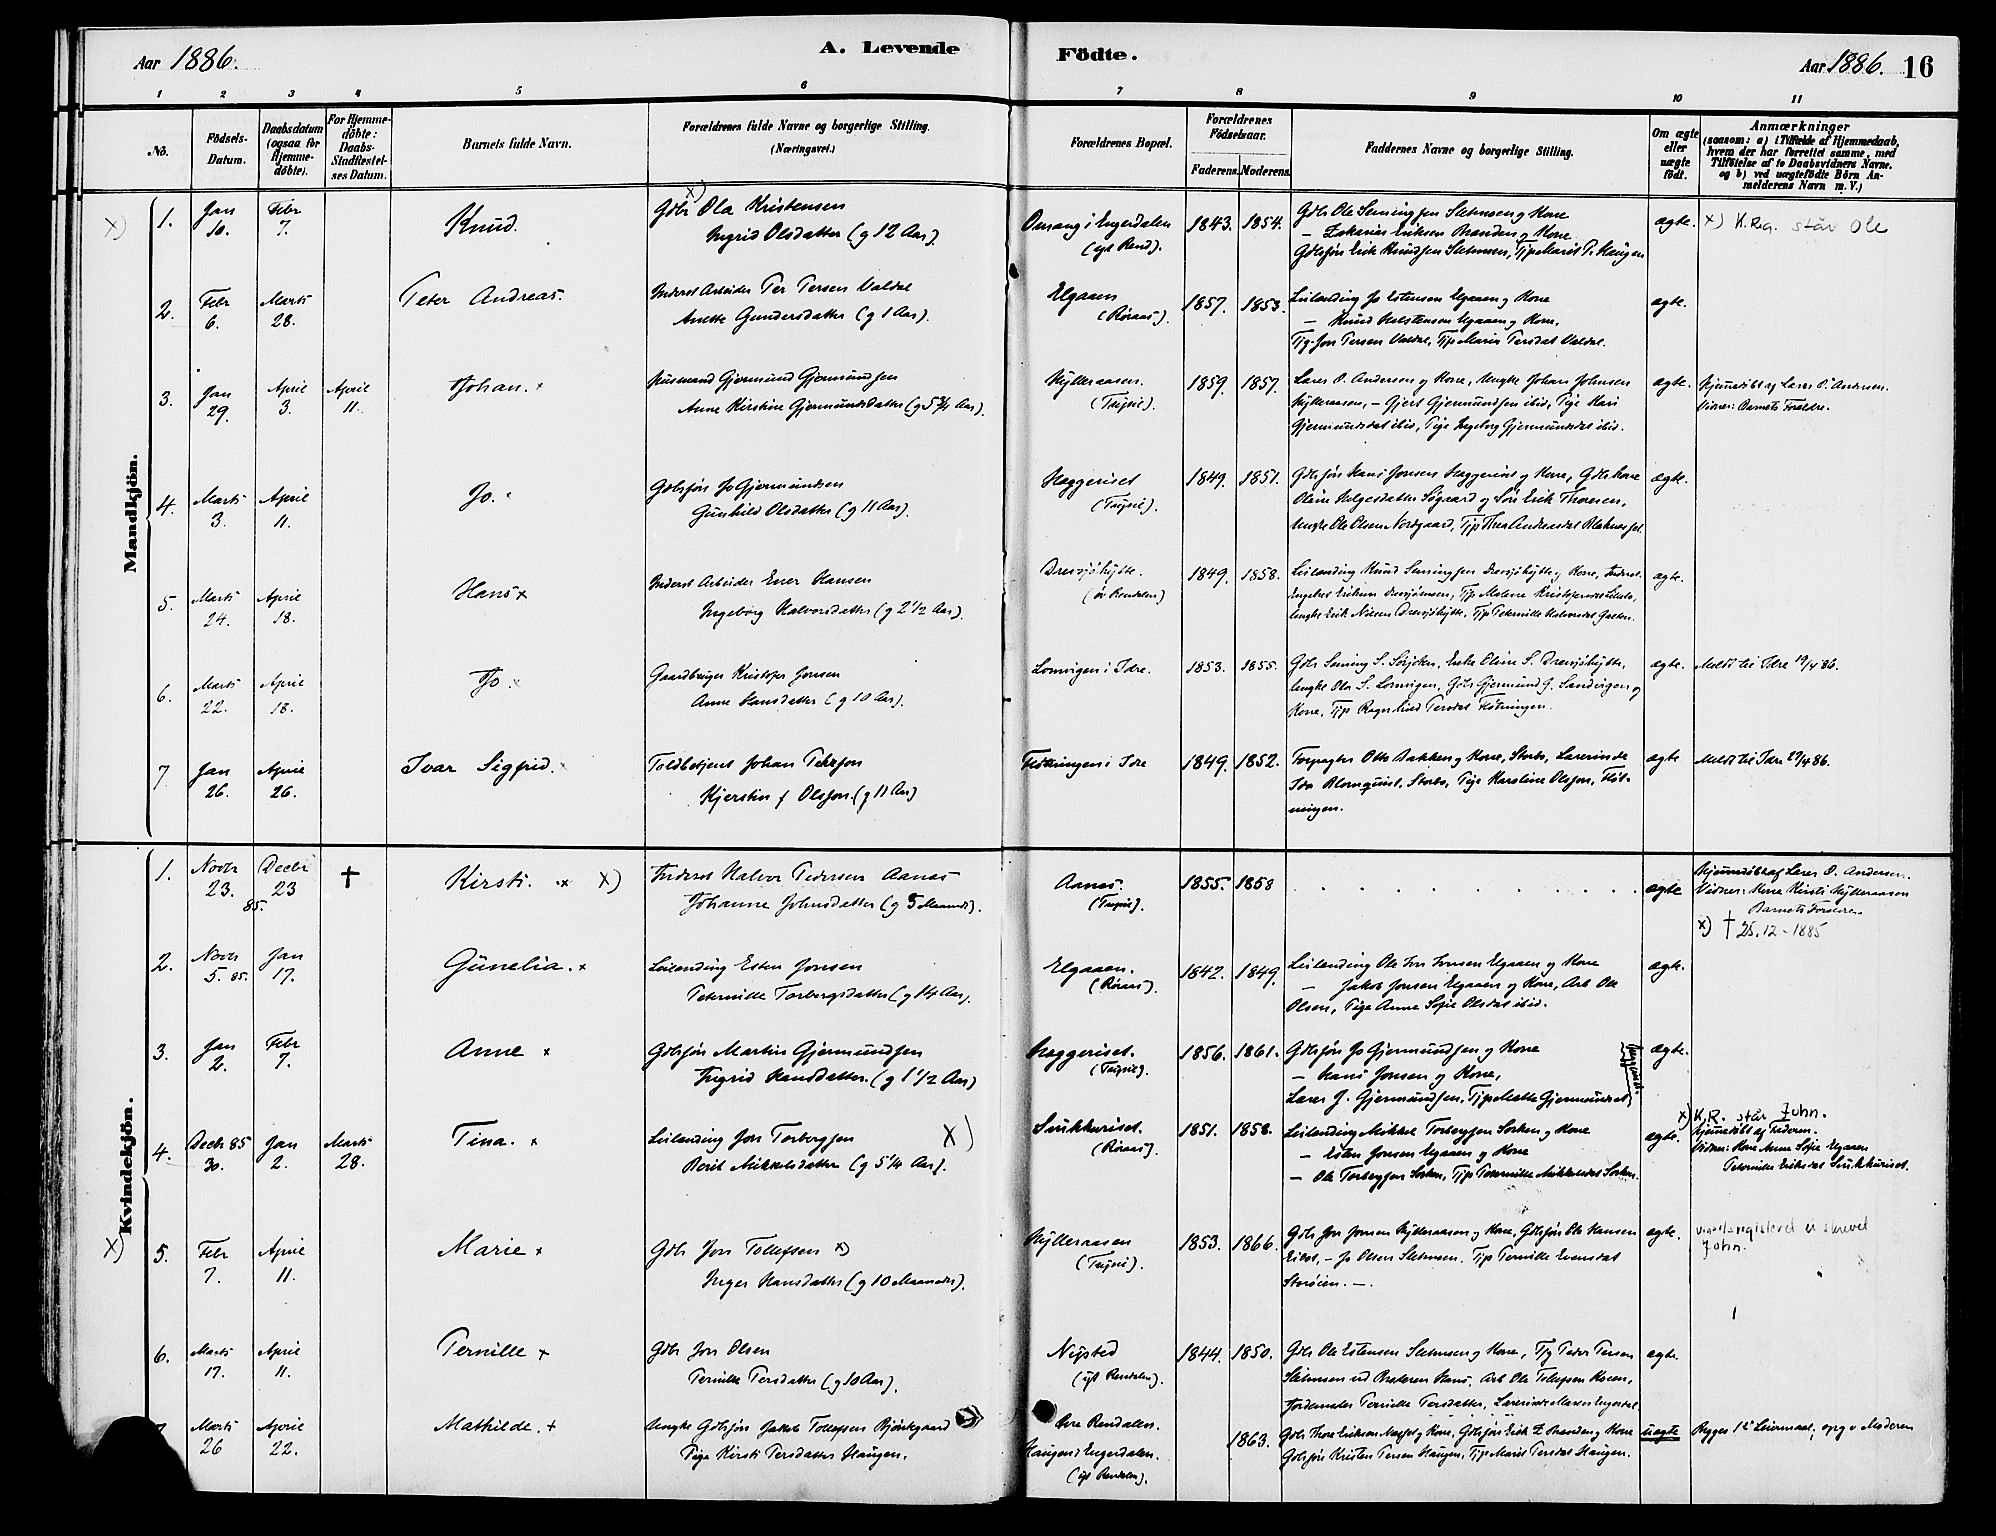 Aar 1886.
A. Levende
Födte.
Aar 1886. 16
1 2 3 4 5 6 7 8 9 10 11
No.
Födsels-Datum.
Daabsdatum (ogsaa for Hjemme-döbte).
For Hjemme-döbte: Daabs-Stadfæstel-ses Datum.
Barnets fulde Navn.
Forældrenes fulde Navne og borgerlige Stilling.
(Næringsvei.)
Forældrenes Bopæl.
Forældrenes Födselsaar.
Faderens. Moderens.
Faddernes Navne og borgerlige Stilling.
Om ægte eller uægte födt.
Anmærkninger
(saasom: a) i Tilfælde af Hjemmedaab, hvem der har forrettet samme, med Tilföielse af to Daabsvidners Navne. og b) ved uægtefödte Börn An-melderens Navn m. V.)
Mandkjön.
x) 1. Jan 10. Febr 7. Knud.
Gdbr x) Ola Kristensen
Ingrid Olsdatter (g 12 Aar).
Omang i Engerdalen
1843. 1854.
ægte. x) K.Reg. står Ole
2. Febr 6. Marts 28. Peter Andreas.
Inderst Arbeider Per Persen Valdal
Anette Gundersdatter (g 1 Aar).
Elgaaen
(Röraas).
1857. 1853.
Leilænding Jo Estensen Elgaaen og Kone
Knud Halstensen Elgaaen og Kone,
Tjp Maria Persdat Valdal.
ægte.
3. Jan 29. April 3. April 11. Johan. x
Husmand Gjermund Gjermundsen
Anne Kirstine Gjermundsdatter (g 5 3/4 Aar).
Hylleraasen.
(Trysil).
1859. 1857.
Lærer O. Andersen og Kone, Ungke Johan Johnsen
Hylleraasen, – Gjert Gjermundsen ibid, Pige Kari
Gjermundsdat ibid, Pige Ingeborg Gjermundsdat ibid.
ægte. Hjemmedöbt af Lærer O. Andersen.
Vidner: Barnets Forældre.
4. Marts 3. April 11. Jo. x
Gdbsjön Jo Gjermundsen
Gunhild Olsdatter (g 11 Aar).
Heggeriset
(Trysil).
1849. 1851.
Gdbsjön Hans Jonsen Heggeriset og Kone, Gdbrkone
Ungke Ole Olsen Nordgaard, Tjp Thea Andreasdat
ægte.
5. Marts 24. April 18. Hans x
Inderst Arbeider Ener Hansen
Ingeborg Halvorsdatter (g 2 1/2 Aar).
Drevsjöhytte.
(ö Rendalen)
1849. 1858.
Leilænding Knud Semingsen Drevsjöhytte og Kone, Inderst
Ungke Erik Nilsen Drevsjöhytte. Tjp Pernille Halvorsdat
ægte.
6. Marts 22. April 18. Jo. x
Gaardbruger Kristofer Jonsen
Anne Hansdatter (g 10 Aar).
Lomvigen i Idre.
1853. 1855.
Gdbr Seming S. Sörjoten, Enke Oline S. Drevsjöhytte,
Ungke Ola S. Lomvigen, Gdbr Gjermund G. Sandvigen og
Kone, Tjp Ragnhild Persdat Flötningen.
ægte. Meldt til Idre 19/4 86.
7 Jan 26. April 26. Ivar Sigfrid. x
Toldbetjent Johan Pehrson
Kjerstin f Olsson. (g 11 Aar)
Flötningen i Idre
1849. 1852.
Forpagter Otto Bakken og Kone, Storbo, Lærerinde
Ida Blomquist, Storbo, Pige Karoline Olsson, Flöt-
ningen.
ægte Meldt til Idre 27/4 86.
Kvindekjön.
1. Novbr 23. 85. Decbr 23 † Kirsti. x x)
Inderst Halvor Pedersen Aanes
Johanne Johnsdatter (g 5 Maaneder).
Aanes.
(Trysil).
1855. 1858
ægte Hjemmedöbt af Lærer O. Andersen.
Vidner: Kone Kirsti Hylleraasen
Barnets Forældre.
x) † 25.12-1885
2. Novbr 5. 85. Jan 17. Gunelia. x
Leilænding Esten Jonsen
Pernille Torbergsdatter (g 14 Aar).
Elgaaen.
(Röraas).
1842. 1849.
Leilænding Ole Jonsen Elgaaen og Kone
– Jakob Jonsen Elgaaen og Kone, Arb Ole
Olsen, Pige Anne Sofie Olsdat ibid.
ægte.
3. Jan 2. Febr 7. Anne x
Gdbsjön Martin Gjermundsen
Ingrid Hansdatter. (g 1 1/2 Aar)
Heggeriset.
(Trysil).
1856. 1861.
Gdbsjön Jo Gjermundsen og Kone
– Hans Jonsen og Kone,
Lærer J. Gjermundsen, Tjp Mette Gjermundsdat
ægte.
4. Decbr 85 30. Jan 2. Marts 28. Tina. x
Leilænding Jon Torbergsen x)
Berit Mikkelsdatter (g 5 1/4 Aar).
Snikkuriset.
(Röraas).
1851. 1858.
Leilænding Mikkel Torbergsen Sorken og Kone
– Esten Jonsen Elgaaen og Kone
– Ole Torbergsen Sorken, Tjp Pernille Mikkelsdat Sorken.
ægte. x) K.R. står John.
Hjemmedöbt af Faderen.
Vidner: Kone Anne Sofie Elgaaen
Pernille Eriksdat Snikkuriset.
x) 5. Febr 7. April 11. Marie x
Gdbr Jon Tollefsen x)
Inger Hansdatter (g 10 Maaneder).
Hylleraasen
(Trysil).
1853. 1866.
Gdbr Jon Jonsen Hylleraasen og Kone, Gdbsjön Ole Hansen
Eibst, – Jo Olsen Sletmoen. Tjp Pernille Evensdat
Storöien. —.
ægte. skrevet
John.
6. Marts 17. April 11. Pernille x
Gdbr Jon Olsen
Pernille Persdatter (g 10 Aar).
Nysted
1844. 1850.
Gdbr Ole Estensen Sletmoen og Kone, Tjg Peder Persen
Sletmoen ved Broderen Hans, Arb Ole Tollefsen Koien,
Jordemoder Pernille Persdatter,
ægte.
Marts 26 April 22. Mathilde. x
Ungke Gdbsjön Jakob Tollefsen Björkgaard
Pige Kirsti Persdatter Haugen.
Övre Rendalen.
Haugen i Engerdalen.
1863.
Gdbsjön Kristen Persen Haugen, Tjp Marit Persdat Haugen.
uægte Begges 1ste Leiermaal, opg v Moderen